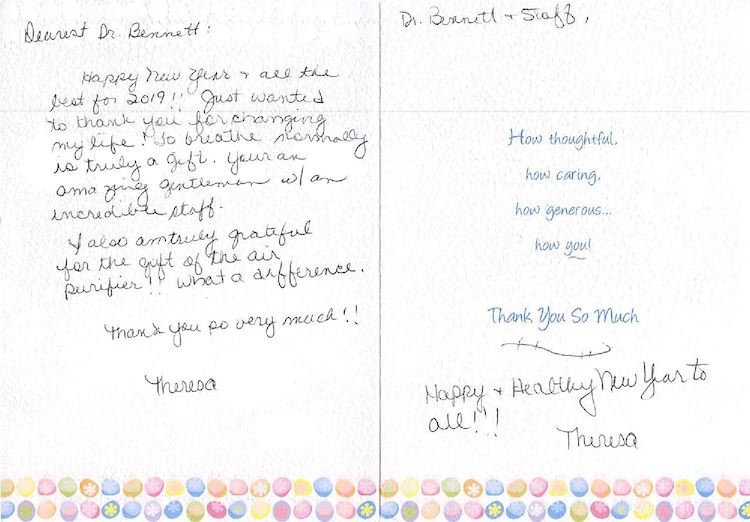 Dearest Dr. Bennett:
Happy New Year + all the
best for 2019!! Just wanted
to thank you for changing
my life! To breathe normally
is truly a gift. Your an
amazing gentleman w/ an
incredible staff.
I also am truly grateful
for the gift of the air
purifier!! What a difference.
Thank you so very much!!
Theresa
Dr. Bennett + Staff,
How thoughtful,
how caring,
how generous...
how you!
Thank You So Much
Happy + Healthy New Year to
all!!!
Theresa